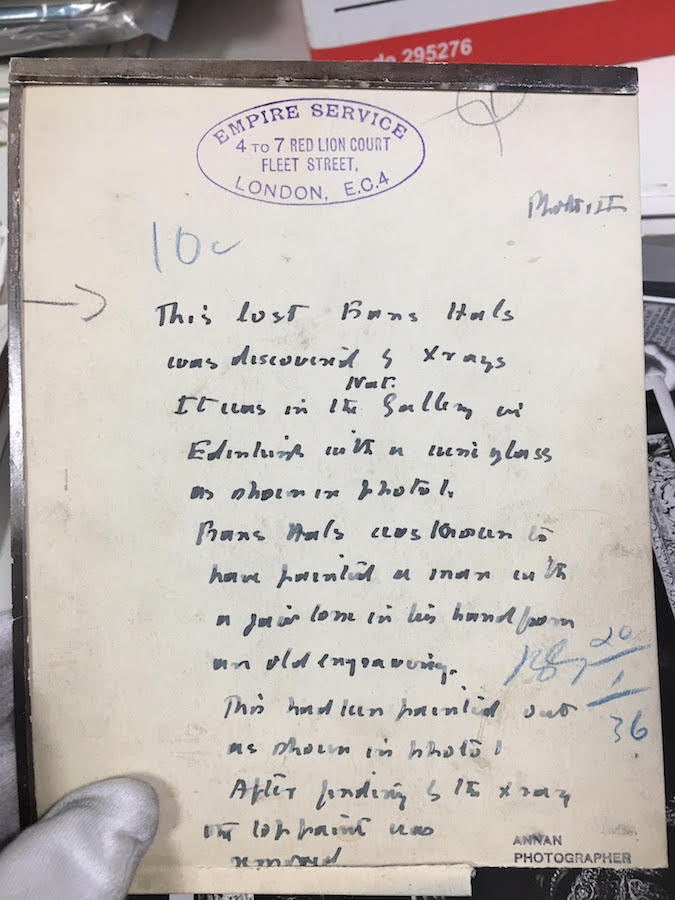 295276
EMPIRE SERVICE
4 TO 7 RED LION COURT
FLEET STREET,
LONDON, E.C.4
Photo. II
10
This lost Frans Hals
was discovered by Xrays
Nat.
It was in the Gallery in
Edinburgh with a wine glass
as shown in photo 1.
Frans Hals was known to
have painted a man with
a jaw bone in his hand from
an old engraving.
This had been painted out
as shown in photo 1
After finding by the xray
the top paint was
removed
20
1
36
ANNAN
PHOTOGRAPHER